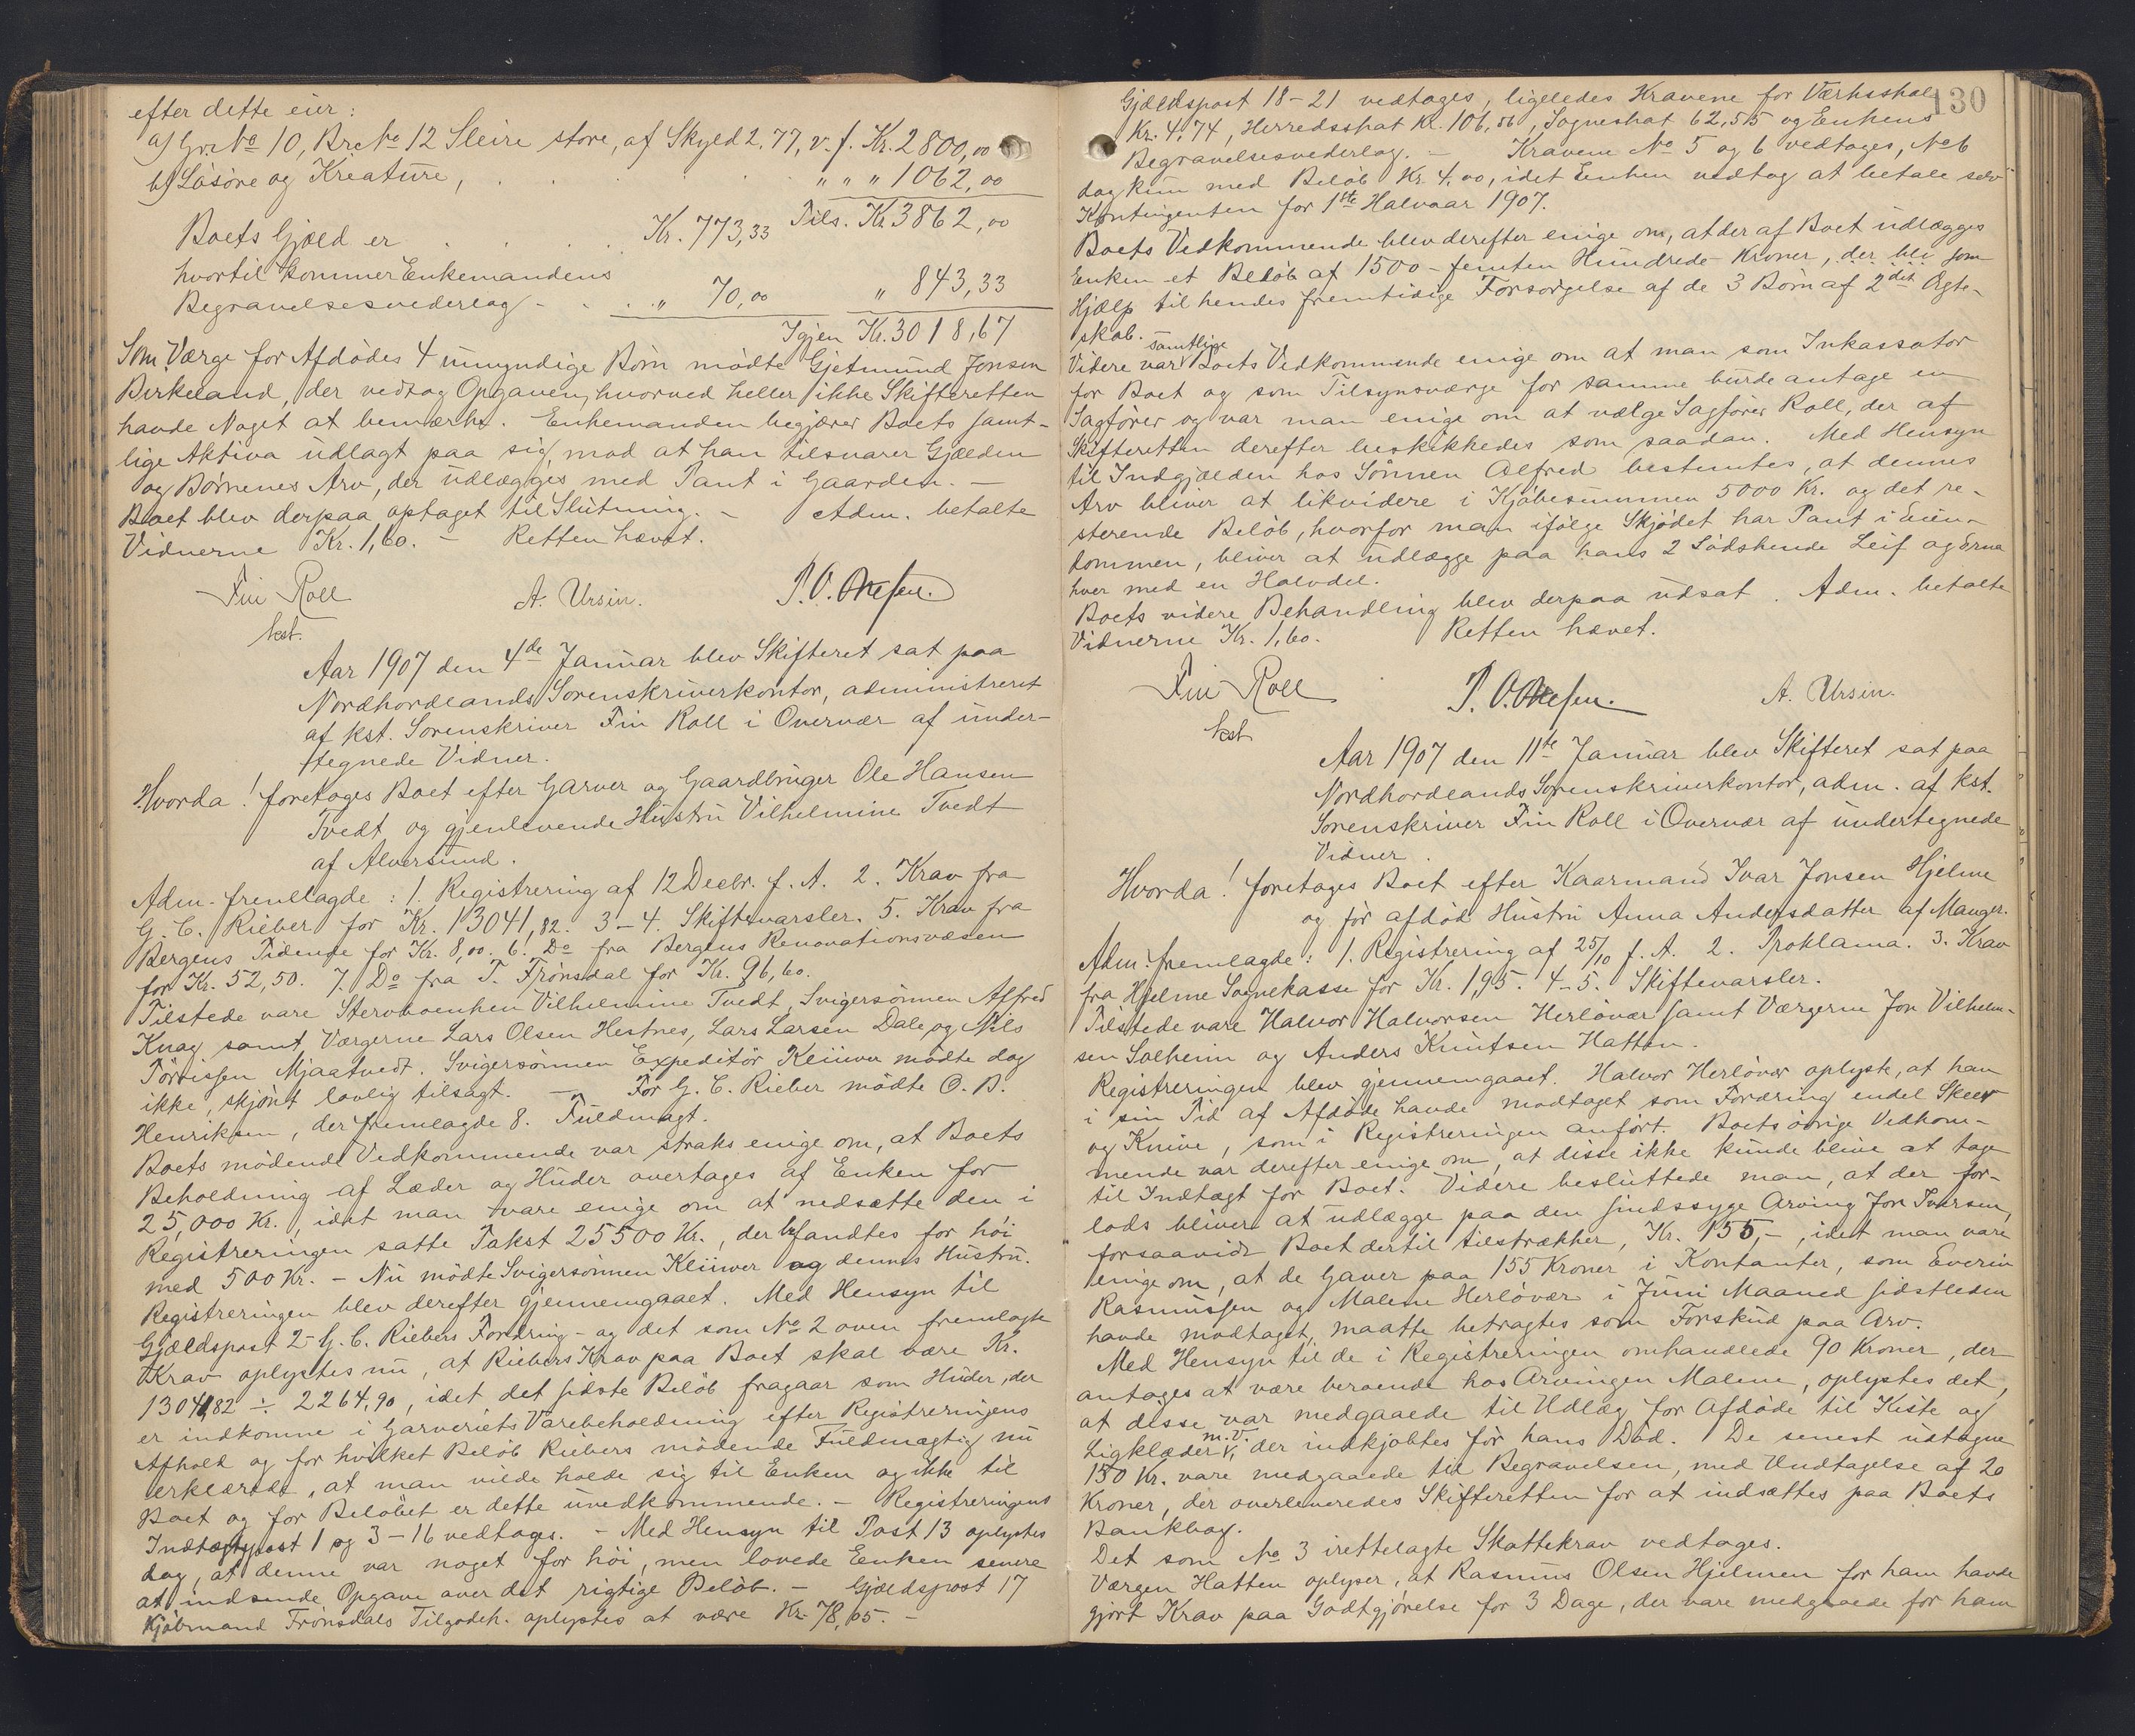 efter dette eier:
a) Gr. No 10, Br. No 12 Sleire store, af Skyld 2,77, v. f. Kr. 2800,00
b) Løsøre og Kreature, . . . . . " " " 1062,00
Tils. Kr. 3862,00
Boets Gjæld er . . . . Kr. 773,33
hvortil kommer Enkemandens
Begravelsesvederlag - . . . " 70,00 " 843,33
Igjen Kr. 3018,67
Som Værge for Afdødes 4 umyndige Børn mødte Gjetmund Jonsen
Birkeland, der vedtog Opgaven, hvorved heller ikke Skifteretten
havde Noget at bemærke. Enkemanden begjærer Boets samt-
lige Aktiva udlagt paa sig mod at han tilsvarer Gjælden
og Børnenes Arv, der udlægges med Pant i Gaarden. -
Boet blev derpaa optaget til Slutning. - Adm. betalte
Vidnerne Kr. 1,60. - Retten hævet.
Fin Roll A. Ursin. P. O. Olesen.
kst.
Aar 1907 den 4de Januar blev Skifteret sat paa
Nordhordlands Sorenskriverkontor, administreret
af kst. Sorenskriver Fin Roll i Overvær af under-
tegnede Vidner.
Hvorda! foretoges Boet efter Garver og Gaardbruger Ole Hansen
Tvedt og gjenlevende Hustru Vilhelmine Tvedt
af Alversund.
Adm. fremlagde: 1. Registrering af 12 Decbr. f. A. 2. Krav fra
G. C. Rieber for Kr. 13041,82. 3-4. Skiftevarsler. 5. Krav fra
Bergens Tidende for Kr. 8,00. 6. Do fra Bergens Renovationsvæsen
for Kr. 52,50. 7. Do fra T. Frønsdal for Kr. 96,60.
Tilstede vare Stervboenken Vilhelmine Tvedt, Svigersønnen Alfred
Knag samt Værgerne Lars Olsen Hestnes, Lars Larsen Dale og Nils
Torrissen Mjaatvedt. Svigersønnen Expeditør Klüwer mødte dog
ikke, skjønt lovlig tilsagt. - For G. C. Rieber mødte O. B.
Henriksen, der fremlagde 8. Fuldmagt.
Boets mødende Vedkommende var straks enige om, at Boets
Beholdning af Læder og Huder overtages af Enken for
25,000 Kr., idet man vare enige om at nedsætte den i
Registreringen satte Takst 25500 Kr., der befandtes for høi
med 500 Kr. - Nu mødte Svigersønnen Klüwer og dennes Hustru.
Registreringen blev derefter gjennemgaaet. Med Hensyn til
Gjældspost 2 - G. C. Riebers Fordring - og det som No 2 oven fremlagte
Krav oplystes nu, at Riebers Krav paa Boet skal være Kr.
13041,82 ÷ 2264,90, idet det sidste Beløb fragaar som Huder, der
er indkomne i Garveriets Varebeholdning efter Registreringens
Afhold og for hvilket Beløb Riebers mødende Fuldmægtig nu
erklærede, at man vilde holde sig til Enken og ikke til
Boet og for Beløbet er dette uvedkommende. - Registreringens
Indtægtspost 1 og 3-16 vedtoges. - Med Hensyn til Post 13 oplystes
dog, at denne var noget for høi, men lovede Enken senere
at indsende Opgave over det rigtige Beløb. - Gjældspost 17
Kjøbmand Frønsdals Tilgodeh. oplystes at være Kr. 78,65. -
130
Gjældspost 18-21 vedtoges, ligeledes Kravene for Værksskat
Kr. 4,74, Herredsskat Kr. 106,56, Sogneskat 62,515 og Enkens
Begravelsesvederlag. - Kravene No 5 og 6 vedtoges, No 6
dog kun med Beløb Kr. 4,00, idet Enken vedtog at betale selv
Kontingenten for 1ste Halvaar 1907.
Boets Vedkommende blev derefter enige om, at der af Boet udlægges
Enken et Beløb af 1500 - femten Hundrede Kroner, der bli som
Hjælp til hendes fremtidige Forsørgelse af de 3 Børn af 2det Ægte-
skab.
Videre var samtlige Boets Vedkommende enige om at man som Inkassator
for Boet og som Tilsynsværge for samme burde antage en
Sagfører og var man enige om at vælge Sagfører Roll, der af
Skifteretten derefter beskikkedes som saadan. Med Hensyn
til Indgjælden hos Sønnen Alfred bestemtes, at dennes
Arv bliver at likvidere i Kjøbesummen 5000 Kr. og det re-
sterende Beløb, hvorfor man ifølge Skjødet har Pant i Eien-
dommen, bliver at udlægge paa hans 2 Sødskende Leif og Erna
hver med en Halvdel.
Boets videre Behandling blev derpaa udsat. Adm. betalte
Vidnerne Kr. 1,60. Retten hævet.
Fin Roll P. O. Olesen. A. Ursin.
kst
Aar 1907 den 11te Januar blev Skifteret sat paa
Nordhordlands Sorenskriverkontor, adm. af kst.
Sorenskriver Fin Roll i Overvær af undertegnede
Vidner.
Hvorda! foretoges Boet efter Kaarmand Ivar Jonsen Hjelme
og før afdød Hustru Anna Andersdatter af Manger.
Adm. fremlagde: 1. Registrering af 25/10 f. A. 2. Proklama. 3. Krav
fra Hjelme Sognekasse for Kr. 1,95. 4-5. Skiftevarsler.
Tilstede vare Halvor Halvorsen Herløvær samt Værgerne Jon Vilhelm-
sen Solheim og Anders Knutsen Hatten.
Registreringen blev gjennemgaaet. Halvor Herløvær oplyste, at han
i sin Tid af Afdøde havde modtaget som Foræring endel Skeer
og Knive, som i Registreringen anført. Boets øvrige Vedkom-
mende var derefter enige om, at disse ikke kunde blive at tage
til Indtægt for Boet. Videre besluttede man, at der for-
lods bliver at udlægge paa den sindssyge Arving Jon Ivarsen,
forsaavidt Boet dertil tilstrækker, Kr. 155,-, idet man vare
enige om, at de Gaver paa 155 Kroner i Kontanter, som Everin
Rasmussen og Malene Herløvær i Juni Maaned sidstleden
havde modtaget, maatte betragtes som Forskud paa Arv.
Med Hensyn til de i Registreringen omhandlede 90 Kroner, der
antoges at være beroende hos Arvingen Malene, oplystes det,
at disse var medgaaede til Udlæg for Afdøde til Kiste og
Ligklæder m.v., der indkjøbtes før hans Død. De senest udtagne
150 Kr. vare medgaaede til Begravelsen, med Undtagelse af 20
Kroner, der overleveredes Skifteretten for at indsættes paa Boets
Bankbog.
Det som No 3 irettelagte Skattekrav vedtoges.
Værgen Hatten oplyser, at Rasmus Olsen Hjelmen for ham havde
gjort Krav paa Godtgjørelse for 3 Dage, der vare medgaaede for ham